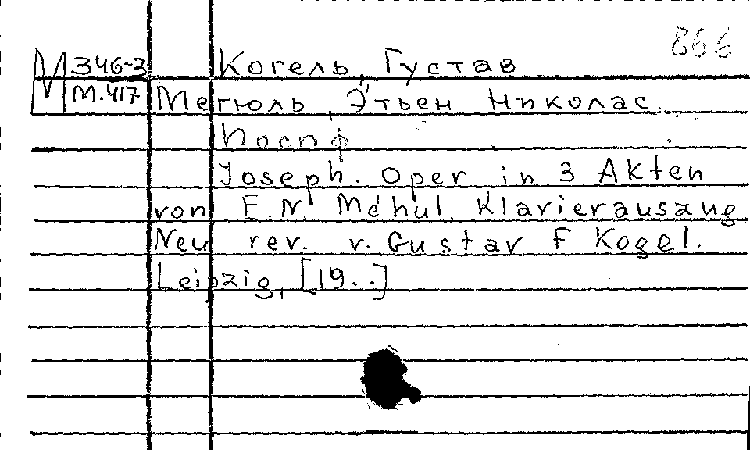 866
М 346-3 Когель, Густав
М.417 Мегюль, Этьен Николас
Иосиф
Joseph. Oper in 3 Akten
von E. N. Méhul. Klavierauszug
Neu rev. v. Gustav F. Kogel.
Leipzig, [19..]